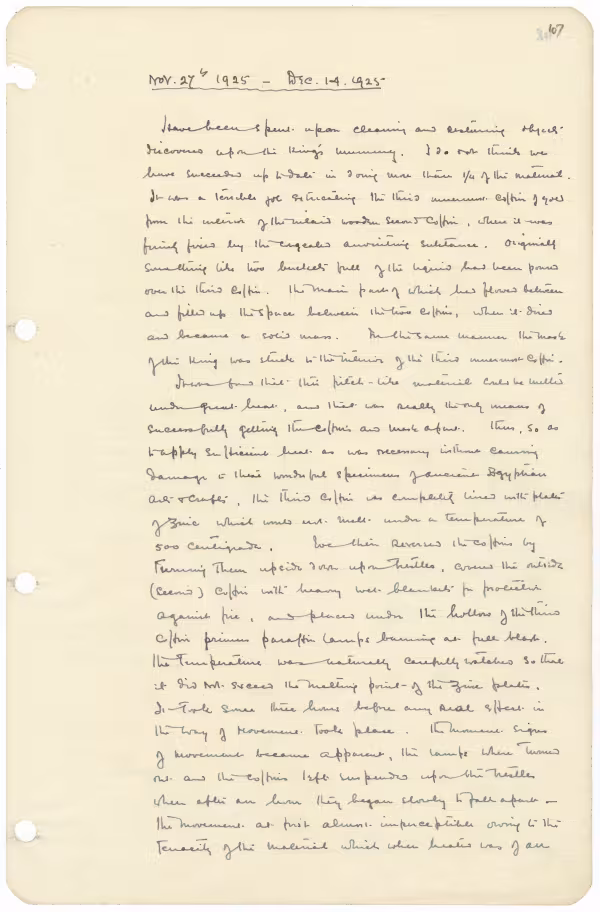 107
Nov. 27th 1925 — Dec. 14. 1925
Have been spent upon cleaning and restoring objects
discovered upon the King's mummy. I do not think we
have succeeded up to date in doing more than 1/4 of the material.
It was a terrible job extricating the third innermost coffin of gold
from the interior of the inlaid wooden second coffin, where it was
firmly fixed by the congealed anointing substance. Originally
something like two buckets full of the liquid had been poured
over the third coffin. The main part of which had flowed between
and filled up the space between the two coffins, when it dried
and became a solid mass. In the same manner the mask
of the King was stuck to the interior of the third innermost coffin.
It was found that this pitch-like material could be melted
under great heat, and that was really the only means of
successfully getting the coffins and mask apart. Thus, so as
to apply sufficient heat as was necessary without causing
damage to these wonderful specimens of ancient Egyptian
arts & crafts, the third coffin was completely lined with plates
of zinc which would not melt under a temperature of
500 centigrade. We then reversed the coffins by
turning them upside down upon trestles, covered the outside
(second) coffin with heavy wet blankets for protection
against fire, and placed under the hollow of the third
coffin primus paraffin lamps burning at full blast.
The temperature was naturally carefully watched so that
it did not exceed the melting point of the zinc plates.
It took some three hours before any real effect in
the way of movement took place. The moment signs
of movement became apparent, the lamps where turned
out and the coffins left suspended upon the trestles
when after an hour they began slowly to fall apart —
the movement at first almost imperceptible owing to the
tenacity of the material which when heated was of an